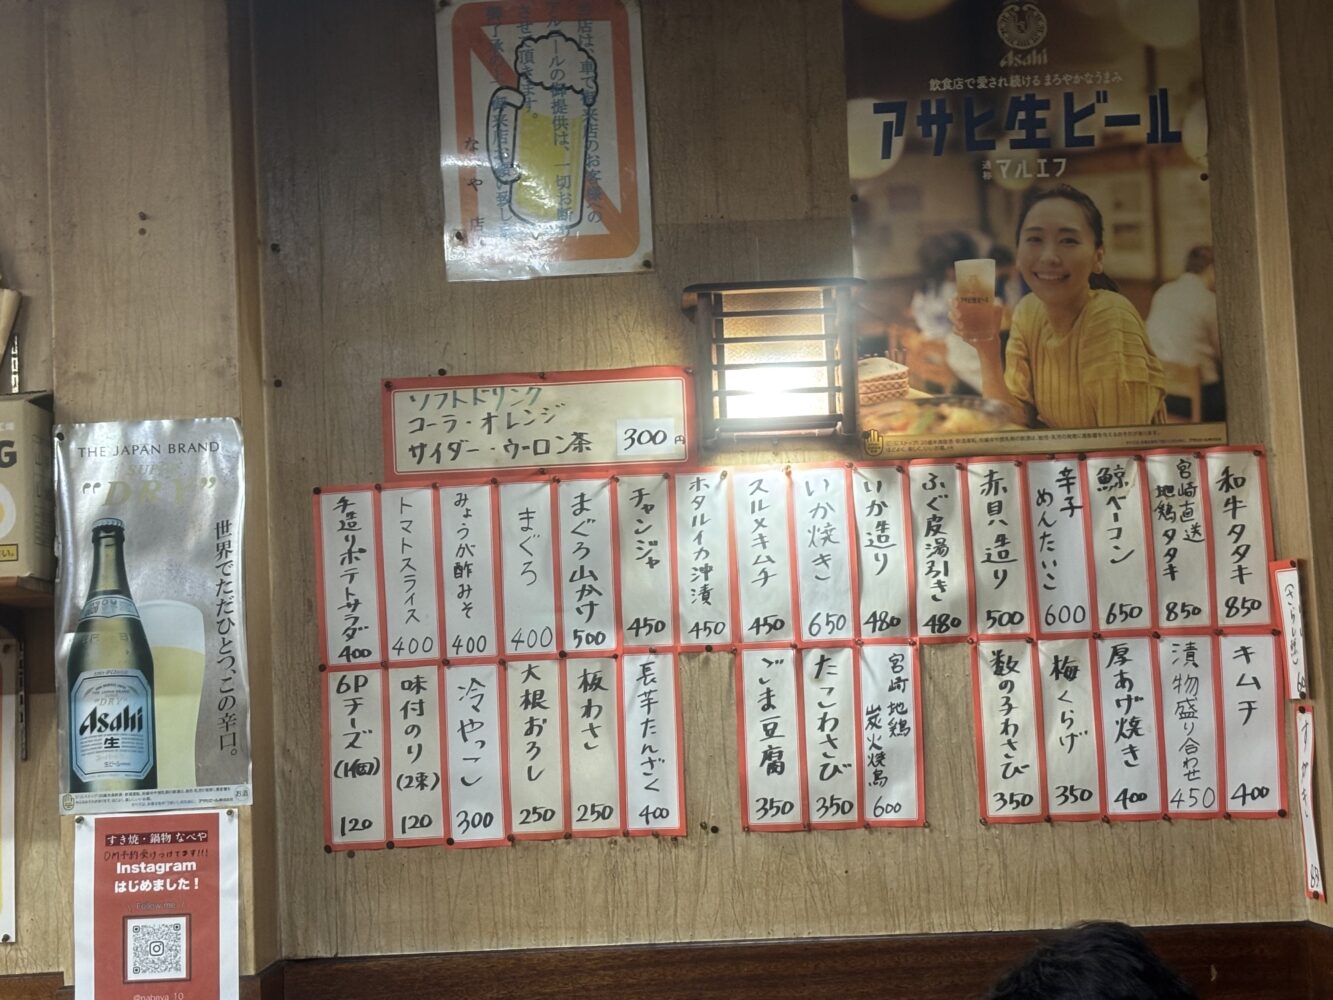 当店は、車で御来店のお客様への
アルコールの御提供は、一切お断り
させて頂きます。
なべや 店
Asahi
飲食店で愛され続けるまろやかなうまみ
アサヒ生ビール
通称 マルエフ
ソフトドリンク
コーラ・オレンジ
サイダー・ウーロン茶 300円
和牛タタキ 850
宮崎直送 地鶏タタキ 850
鯨ベーコン 650
辛子めんたいこ 600
赤貝造り 500
ふぐ皮湯引き 480
いか造り 480
いか焼き 650
スルメキムチ 450
ホタルイカ沖漬 450
チャンジャ 450
まぐろ山かけ 500
まぐろ 400
みょうが酢みそ 400
トマトスライス 400
手造りポテトサラダ 400
キムチ 400
漬物盛り合わせ 450
厚あげ焼き 400
梅くらげ 350
数の子わさび 350
宮崎地鶏 炭火焼鳥 600
たこわさび 350
ごま豆腐 350
長芋たんざく 400
板わさ 250
大根おろし 250
冷やっこ 300
味付のり(2束) 120
6Pチーズ(1個) 120
THE JAPAN BRAND
SUPER
"DRY"
世界でただひとつ、この辛口。
Asahi
生
お酒
すき焼・鍋物 なべや
DM予約受けつけてます!!!
Instagram
はじめました！
Follow me
@nabeya_10